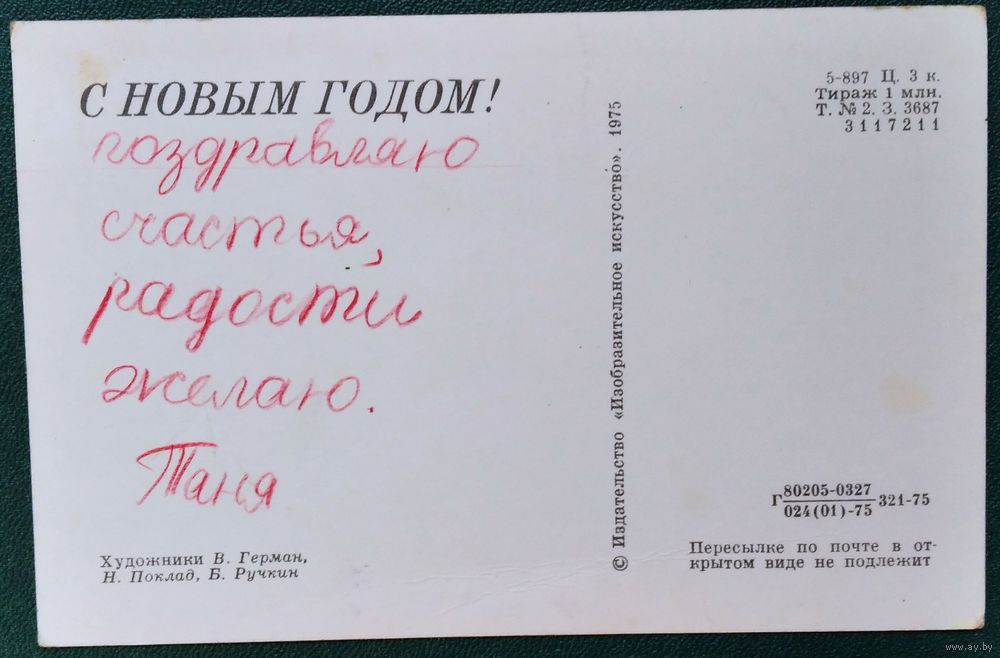 С НОВЫМ ГОДОМ!
поздравляю
счастья,
радости
желаю.
Таня
Художники В. Герман,
Н. Поклад, Б. Ручкин
© Издательство «Изобразительное искусство». 1975
5-897 Ц. 3 к.
Тираж 1 млн.
Т. № 2. З. 3687
3117211
Г 80205-0327 321-75
024(01)-75
Пересылке по почте в от-
крытом виде не подлежит
www.ay.by